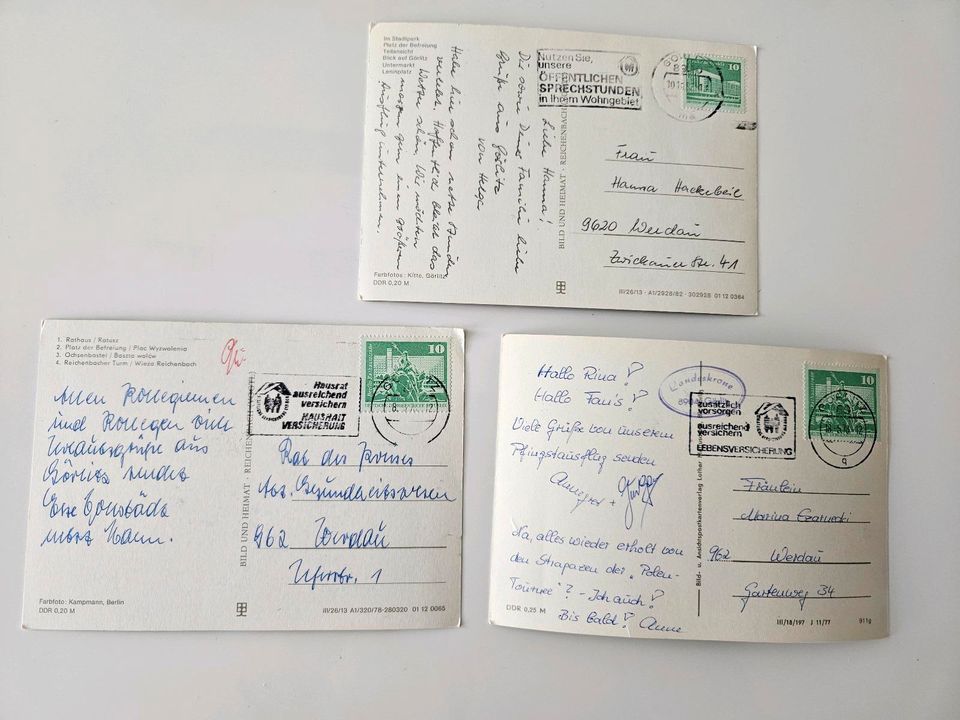 Im Stadtpark
Platz der Befreiung
Teilansicht
Blick auf Görlitz
Untermarkt
Leninplatz
Liebe Hanna!
Dir sowie Deiner Familie liebe
Grüße aus Görlitz
von Helga
Habe hier schon nette Stunden
verlebt. Hoffentlich bleibt das
Wetter schön. Wir möchten
morgen gern einen größeren
Ausflug unternehmen.
Farbfotos: Kitte, Görlitz
DDR 0,20 M
BILD UND HEIMAT · REICHENBACH
Nutzen Sie,
unsere
ÖFFENTLICHEN
SPRECHSTUNDEN
in Ihrem Wohngebiet
10
Frau
Hanna Hackebeil
9620 Werdau
Zwickauer Str. 41
III/26/13 · A1/2928/82 · 302928 01 12 0364
1. Rathaus / Ratusz
2. Platz der Befreiung / Plac Wyzwolenia
3. Ochsenbastei / Baszta wołów
4. Reichenbacher Turm / Wieża Reichenbach
Allen Kolleginnen
und Kollegen viele
Urlaubsgrüße aus
Görlitz sendet
nebst Mann.
Farbfoto: Kampmann, Berlin
DDR 0,20 M
BILD UND HEIMAT · REICHENBACH
Hausrat
ausreichend
versichern
HAUSHALT
VERSICHERUNG
10
Rat des Kreises
Abt. Gesundheitswesen
962 Werdau
Uferstr. 1
III/26/13 A1/320/78-280320 01 12 0065
Hallo Rina!
Hallo Fan's!
Viele Grüße von unserem
Pfingstausflug senden
Na, alles wieder erholt von
den Strapazen der "Polen-
Tournee"? - Ich auch!
Bis bald! Anne
DDR 0,25 M
Landeskrone
zusätzlich
vorsorgen
ausreichend
versichern
LEBENSVERSICHERUNG
10
Fräulein
Martina
962 Werdau
Gartenweg 34
Bild- u. Ansichtspostkartenverlag Lothar
III/18/197 J 11/77
911g